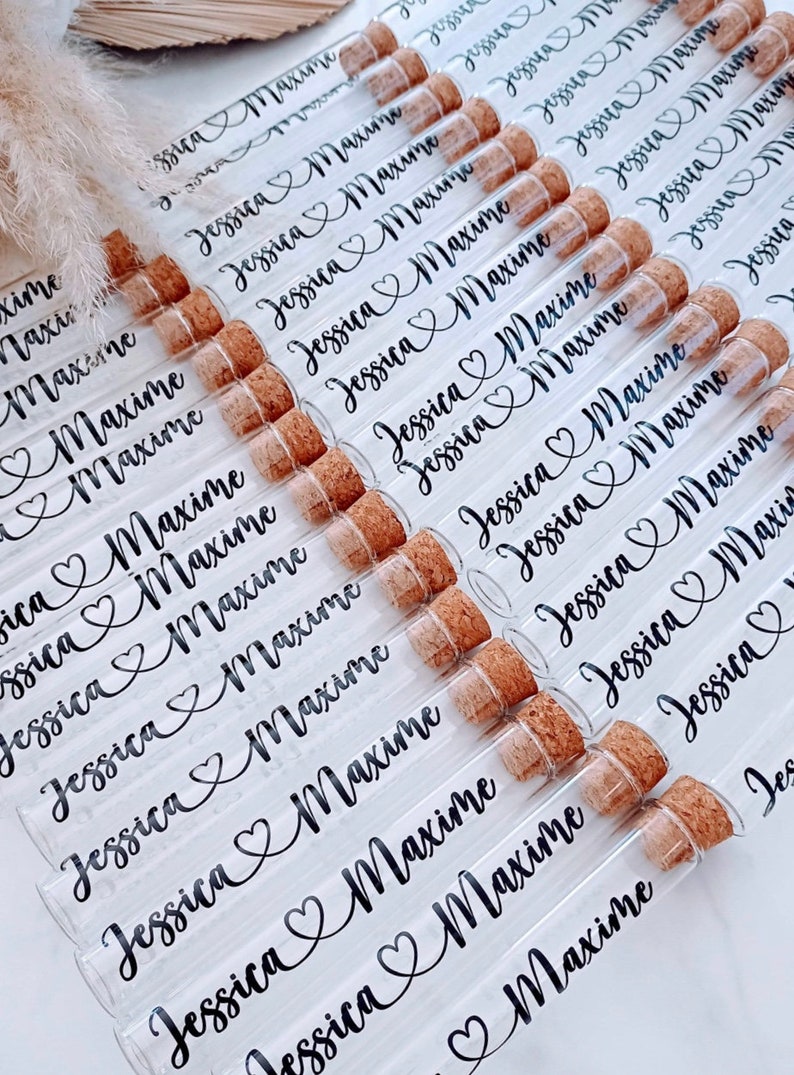 Jessica
Jessica
Jessica
Jessica
Jessica
Jessica
Jessica Maxime
Jessica Maxime
Jessica
Jessica
Maxime
Jessica ♡ Maxime
Jessica ♡ Maxime
Jessica ♡ Maxime
Jessica ♡ Maxime
Jessica ♡ Maxime
Jessica ♡ Maxime
Jessica ♡ Maxime
Jessica ♡ Maxime
Jessica ♡ Maxime
Jessica ♡ Maxime
Jessica ♡ Maxime
Jessica ♡ Maxime
Jessica ♡ Maxime
Jessica
Maxime
Maxime
Maxime
♡ Maxime
♡ Maxime
♡ Maxime
♡ Maxime
Jessica ♡ Maxime
Jessica ♡ Maxime
Jessica ♡ Maxime
Jessica ♡ Maxime
Jessica ♡ Maxime
Jessica ♡ Maxime
♡ Maxime